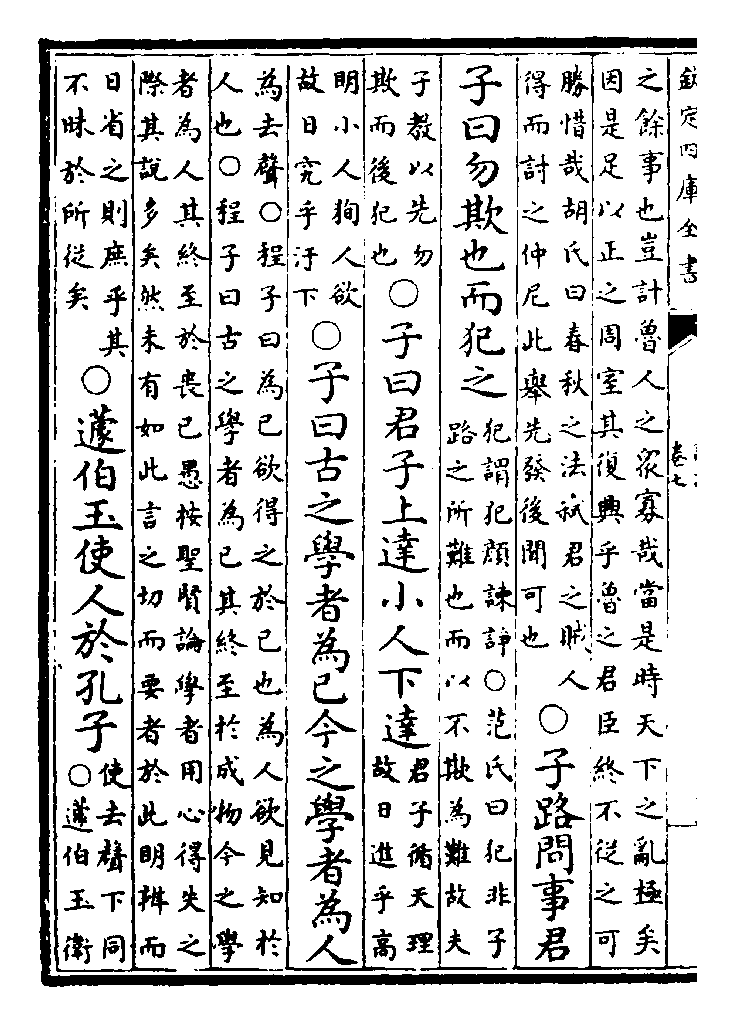 欽定四庫全書
卷七
之餘事也豈計魯人之衆寡哉當是時天下之亂極矣
因是足以正之周室其復興乎魯之君臣終不從之可
勝惜哉胡氏曰春秋之法弑君之賊人
得而討之仲尼此舉先發後聞可也
○子路問事君
子曰勿欺也而犯之
犯謂犯顔諫諍○范氏曰犯非子
路之所難也而以不欺為難故夫
子教以先勿
欺而後犯也
○子曰君子上達小人下達
君子循天理
故日進乎高
明小人狥人欲
故日究乎汙下
○子曰古之學者為已今之學者為人
為去聲○程子曰為已欲得之於已也為人欲見知於
人也○程子曰古之學者為已其終至於成物今之學
者為人其終至於喪已愚按聖賢論學者用心得失之
際其說多矣然未有如此言之切而要者於此明辨而
日省之則庶乎其
不昧於所從矣
○蘧伯玉使人於孔子
使去聲下同
○蘧伯玉衛